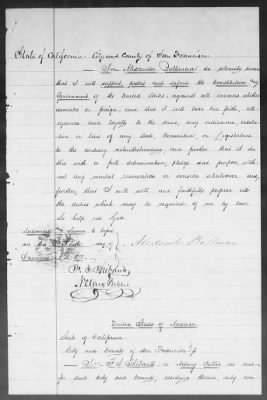 State of California. City and County of San Francisco
I, Alexander Dallman do solemnly swear
that I will support, protect and defend the Constitution and
Government of the United States, against all enemies, whether
domestic or foreign, and that I will bear true faith, alle-
giance and loyalty to the same, any ordinance, resolu-
tion or law of any State, Convention or Legislature
to the contrary notwithstanding, and further that I do
this with a full determination, pledge and purpose, with-
out any mental reservation or evasion whatsoever, and
further, that I will well and faithfully perform all
the duties which may be required of me by law.
So help me God
Subscribed & Sworn to before
me this day of
Alexander Dallman
F. S.
Notary Public
United States of America
State of California
City and County of San Francisco
I, F. S. a Notary Public in and
for said City and County, residing therein, duly